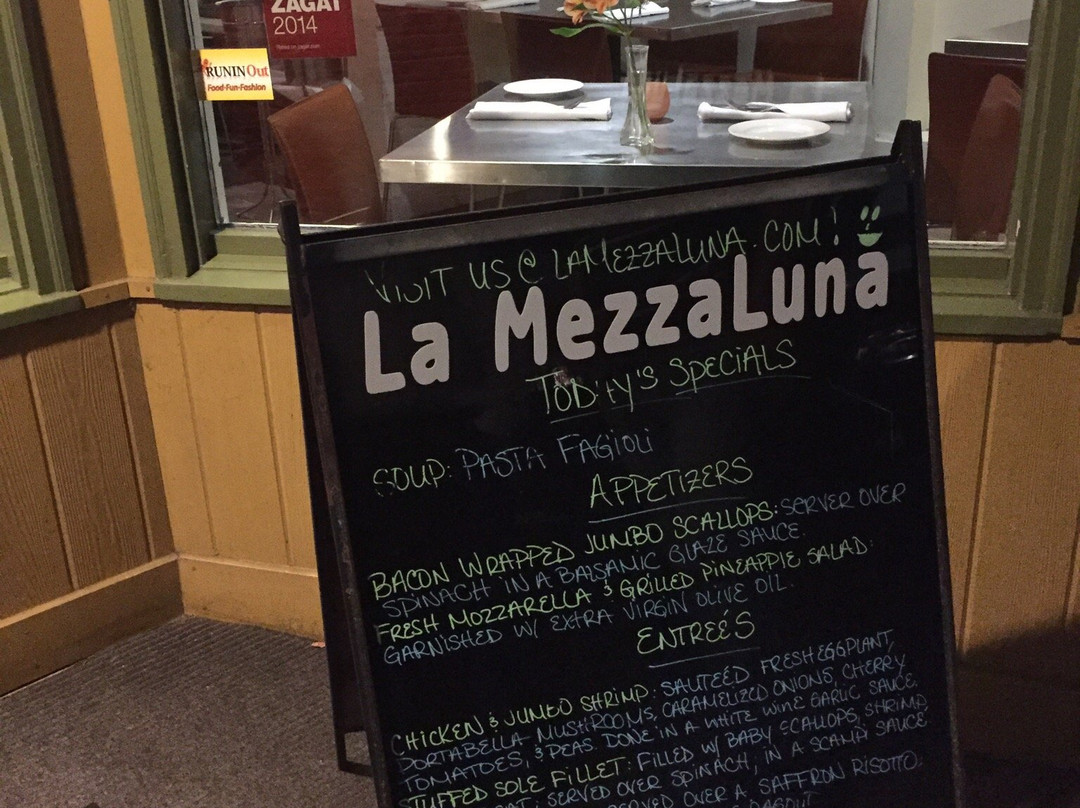 ZAGAT
2014
RUNINOut
Food-Fun-Fashion
VISIT US @ LAMEZZALUNA.COM!
La MezzaLuna
TODAY'S SPECIALS
SOUP: PASTA FAGIOLI
APPETIZERS
BACON WRAPPED JUMBO SCALLOPS: SERVER OVER
SPINACH IN A BALSAMIC GLAZE SAUCE.
FRESH MOZZARELLA & GRILLED PINEAPPLE SALAD:
GARNISHED W/ EXTRA VIRGIN OLIVE OIL.
ENTREÉ'S
CHICKEN & JUMBO SHRIMP: SAUTEÉD FRESH EGGPLANT,
PORTABELLA MUSHROOMS, CARAMELIZED ONIONS, CHERRY
TOMATOES, & PEAS DONE IN A WHITE WINE GARLIC SAUCE.
STUFFED SOLE FILLET: FILLED W/ BABY SCALLOPS, SHRIMP
SERVED OVER SPINACH, IN A SCAMPI SAUCE
SERVED OVER A SAFFRON RISOTTO: